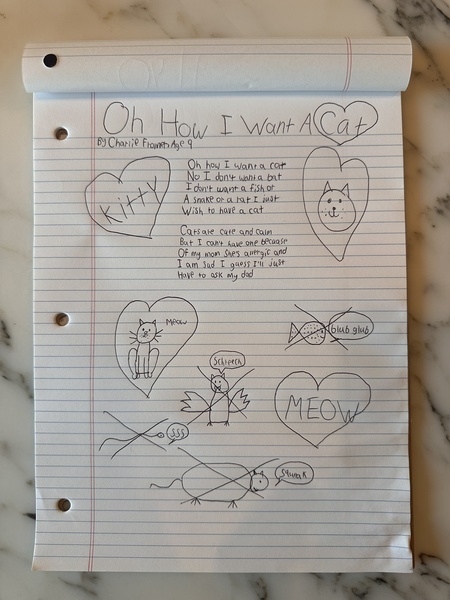 Oh How I Want A Cat
By Charlie Frames Age 9
Kitty
Oh how I want a cat
No I don't want a bat
I don't want a fish or
A snake or a rat I just
Wish to have a cat
Cats are cute and calm
But I can't have one because
Of my mom She's allergic and
I am sad I guess I'll just
Have to ask my dad
Meow
Glub glub
Schreech
MEOW
SSS
Squeak